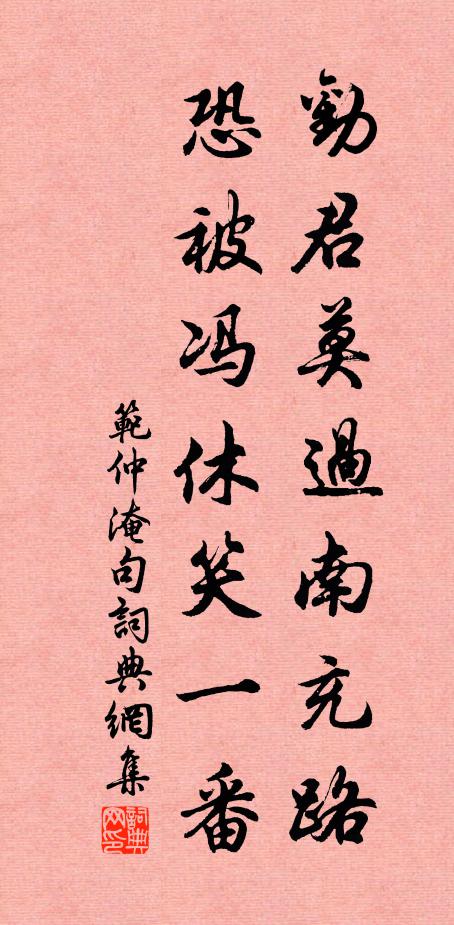 勸君莫過南充路
恐被冯休笑一番
範仲淹句詞典網集
詞典
网印